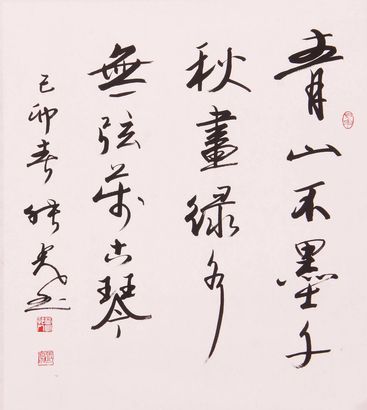 青山不墨千
秋畫绿水
無弦萬古琴
己卯春 书